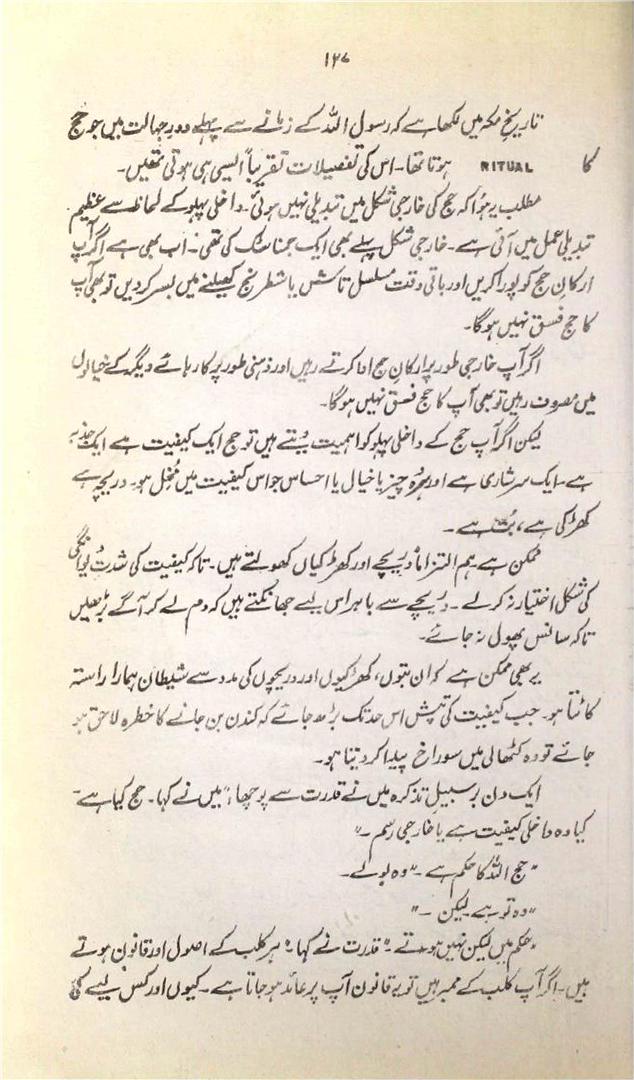 ۱۲۷
تاریخِ مکہ میں لکھا ہے کہ رسول اللہ کے زمانے سے پہلے دورِ جہالت میں جو حج
کا RITUAL ہوتا تھا۔ اس کی تفصیلات تقریباً ایسی ہی ہوتی تھیں۔
مطلب یہ ہوا کہ حج کی خارجی شکل میں تبدیلی نہیں ہوئی۔ داخلی پہلو کے لحاظ سے عظیم
تبدیلی عمل میں آئی ہے۔ خارجی شکل پہلے بھی ایک جمناسٹک کی تھی۔ اب بھی ہے اگر آپ
ارکانِ حج کو پورا کریں اور باقی وقت مسلسل تاش یا شطرنج کھیلنے میں بسر کردیں تو بھی آپ
کا حج فسق نہیں ہوگا۔
اگر آپ خارجی طور پر ارکانِ حج ادا کرتے رہیں اور ذہنی طور پر کارہائے دیگر کے خیالوں
میں مصروف رہیں تو بھی آپ کا حج فسق نہیں ہوگا۔
لیکن اگر آپ حج کے داخلی پہلو کو اہمیت دیتے ہیں تو حج ایک کیفیت ہے ایک جذبہ
ہے۔ ایک سرشاری ہے اور ہر وہ چیز یا خیال یا احساس جو اس کیفیت میں مُخل ہو۔ دریچہ ہے
کھڑکی ہے، بُت ہے۔
ممکن ہے ہم التزاماً دریچے اور کھڑکیاں کھولتے ہیں۔ تاکہ کیفیت کی شدت دیوانگی
کی شکل اختیار نہ کرلے۔ دریچے سے باہر اس لیے جھانکتے ہیں کہ دم لے کر آگے بڑھیں
تاکہ سانس پھول نہ جائے۔
یہ بھی ممکن ہے کہ ان بتوں، کھڑکیوں اور دریچوں کی مدد سے شیطان ہمارا راستہ
کاٹتا ہو۔ جب کیفیت کی تپش اس حد تک بڑھ جائے کہ کندن بن جانے کا خطرہ لاحق ہو
جائے تو وہ کٹھالی میں سوراخ پیدا کر دیتا ہو۔
ایک دن برسبیلِ تذکرہ میں نے قدرت سے پوچھا، "میں نے کہا۔ حج کیا ہے۔
کیا وہ داخلی کیفیت ہے یا خارجی رسم۔"
"حج اللہ کا حکم ہے۔" وہ بولے۔
"وہ تو ہے لیکن ۔"
"حکم میں لیکن نہیں ہوتے۔" قدرت نے کہا۔ "ہر کلب کے اصول اور قانون ہوتے
ہیں۔ اگر آپ کلب کے ممبر ہیں تو یہ قانون آپ پر عائد ہوجاتا ہے۔ کیوں اور کس لیے کی